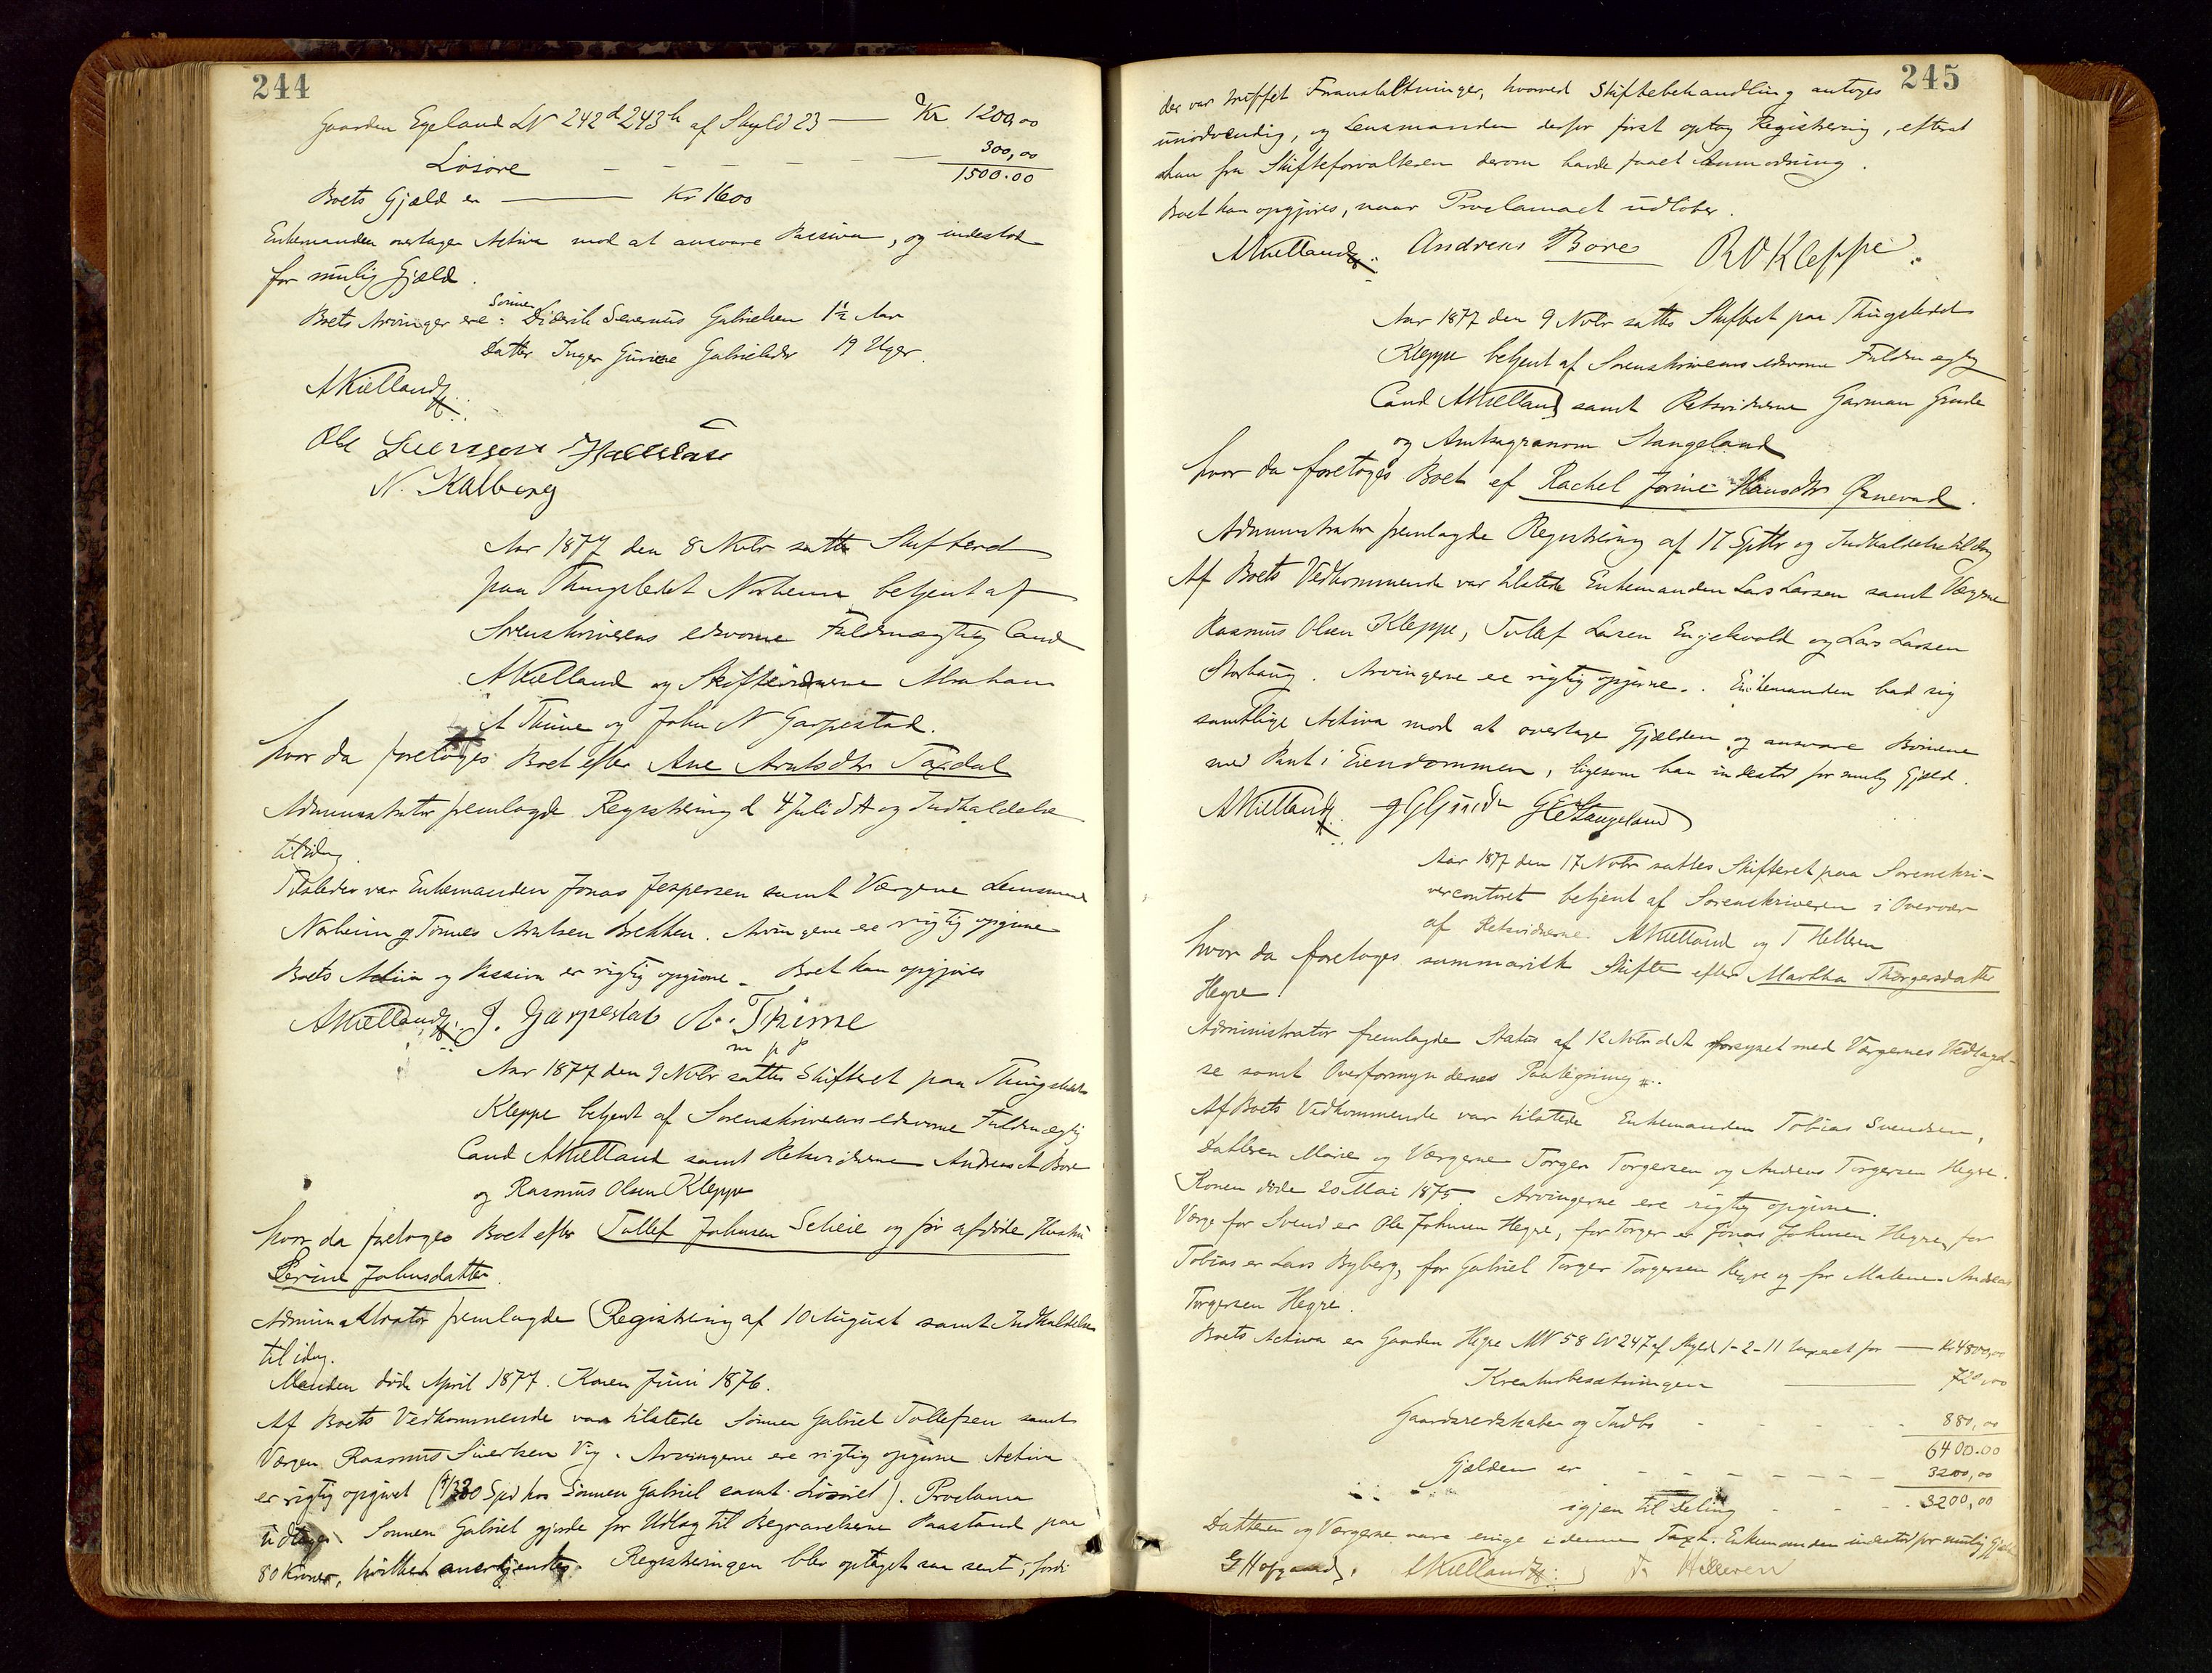 244
Gaarden Egeland LN 242d 243h af Skyld 23 — Kr 1200,00
Løsøre - - - - - 300,00
1500.00
Boets Gjæld er — Kr 1600
Enkemanden overtager Activa mod at ansvare Passiva, og indestod
for mulig Gjæld.
Boets Arvinger ere: Sønnen Diderik Severnus Gabrielsen 1½ Aar
Datter Inger Gurine Gabrielsdr 19 Uger.
AKielland
Ole
N. Kalberg
Aar 1877 den 8 Novbr sattes Skifteret
paa Thingstedet Norheim betjent af
Sorenskriverens edsvorne Fuldmægtig Cand
AKielland og Skiftevidnerne Abraham
A Thime og John N Garpestad.
hvor da foretoges Boet efter Ane Arntsdtr Taxdal
Administrator fremlagde Registrering d 4 Juli d A og Indkaldelse
til idag.
Tilstede var Enkemanden Jonas Jespersen samt Værgerne Lensmand
Norheim og Tønnes Arntsen Brekken. Arvingerne ere rigtig opgivne
Boets Activa og Passiva er rigtig opgivne – Boet kan opgjøres
AKielland J. Garpestad A. Thime
m p p
Aar 1877 den 9 Novbr sattes Skifteret paa Thingstedet
Kleppe betjent af Sorenskriverens edsvorne Fuldmægtig
Cand AKielland samt Retsvidnerne Andreas A Bore
og Rasmus Olsen Kleppe
hvor da foretoges Boet efter Tollef Johnsen Scheie og før afdøde Hustru
Serine Johnsdatter.
Administrator fremlagde Registrering af 10 August samt Indkaldelse
til idag.
Manden døde April 1877. Konen Juni 1876.
Af Boets Vedkommende var tilstede Sønnen Gabriel Tollefsen samt
Værgen Rasmus Sivertsen Vig. Arvingerne ere rigtig opgivne Activa
er rigtig opgivet ( 300 Spd hos Sønnen Gabriel samt Løsøret). Proclama
udtages Sønnen Gabriel gjorde for Udlæg til Begravelserne Paastand paa
80 Kroner, hvilket anerkjendtes. Registreringen blev optaget saa sent, fordi
245
der var truffet Foranstaltninger, hvorved Skiftebehandling antoges
unødvendig, og Lensmanden derfor først optog Registrering, efterat
han fra Skifteforvalteren derom havde faaet Anmodning.
Boet kan opgjøres, naar Proclamaet udløber.
AKielland. Andreas Bore R O Kleppe.
Aar 1877 den 9 Novbr sattes Skifteret paa Thingstedet
Kleppe betjent af Sorenskriverens edsvorne Fuldmægtig
Cand AKielland samt Retsvidnerne Garman Grude
og Amtsagronom Stangeland
hvor da foretoges Boet ef Rachel Jorine Hansdtr Ørnevad.
Administrator fremlagde Registrering af 17 Septbr og Indkaldelse til idag
Af Boets Vedkommende var tilstede Enkemanden Lars Larsen samt Værgerne
Rasmus Olsen Kleppe, Tollef Larsen Engelsvold og Lars Larsen
Storhaug. Arvingerne ere rigtig opgivne. Enkemanden bad sig
samtlige Activa mod at overtage Gjælden og ansvare Børnene
med Pant i Eiendommen, ligesom han indestod for mulig Gjæld.
AKielland GStangeland
Aar 1877 den 17 Novbr sattes Skifteret paa Sorenskri-
vercontoret betjent af Sorenskriveren i Overvær
af Retsvidnerne AKielland og T Helleren
hvor da foretoges summarisk Skifte efter Martha Thorgersdatter
Hegre.
Administrator fremlagde Status af 12 Novbr d A forsynet med Værgernes Vedtagel-
se samt Overformyndernes Paategning.
Af Boets Vedkommende var tilstede Enkemanden Tobias Svendsen,
Datteren Marie og Værgerne Torger Torgersen og Andreas Torgersen Hegre.
Konen døde 20 Mai 1875. Arvingerne ere rigtig opgivne.
Værge for Svend er Ole Johnsen Hegre, for Torger er Jonas Johnsen Hegre, for
Tobias er Lars Byberg, for Gabriel Torger Torgersen Hegre og for Malene Andreas
Torgersen Hegre.
Boets Activa er Gaarden Hegre MN 58 LN 247 af Skyld 1-2-11 taxeret for — Kr 4800,00
Kreaturbesætningen — 720,00
Gaardsredskaber og Indbo - - - - 880,00
6400.00
Gjælden er - - - - - - - 3200,00
igjen til Deling - - - 3200,00
Datteren og Værgerne vare enige i denne Taxt. Enkemanden indestod for mulig Gjæld
G Hofgaard. AKielland T. Helleren